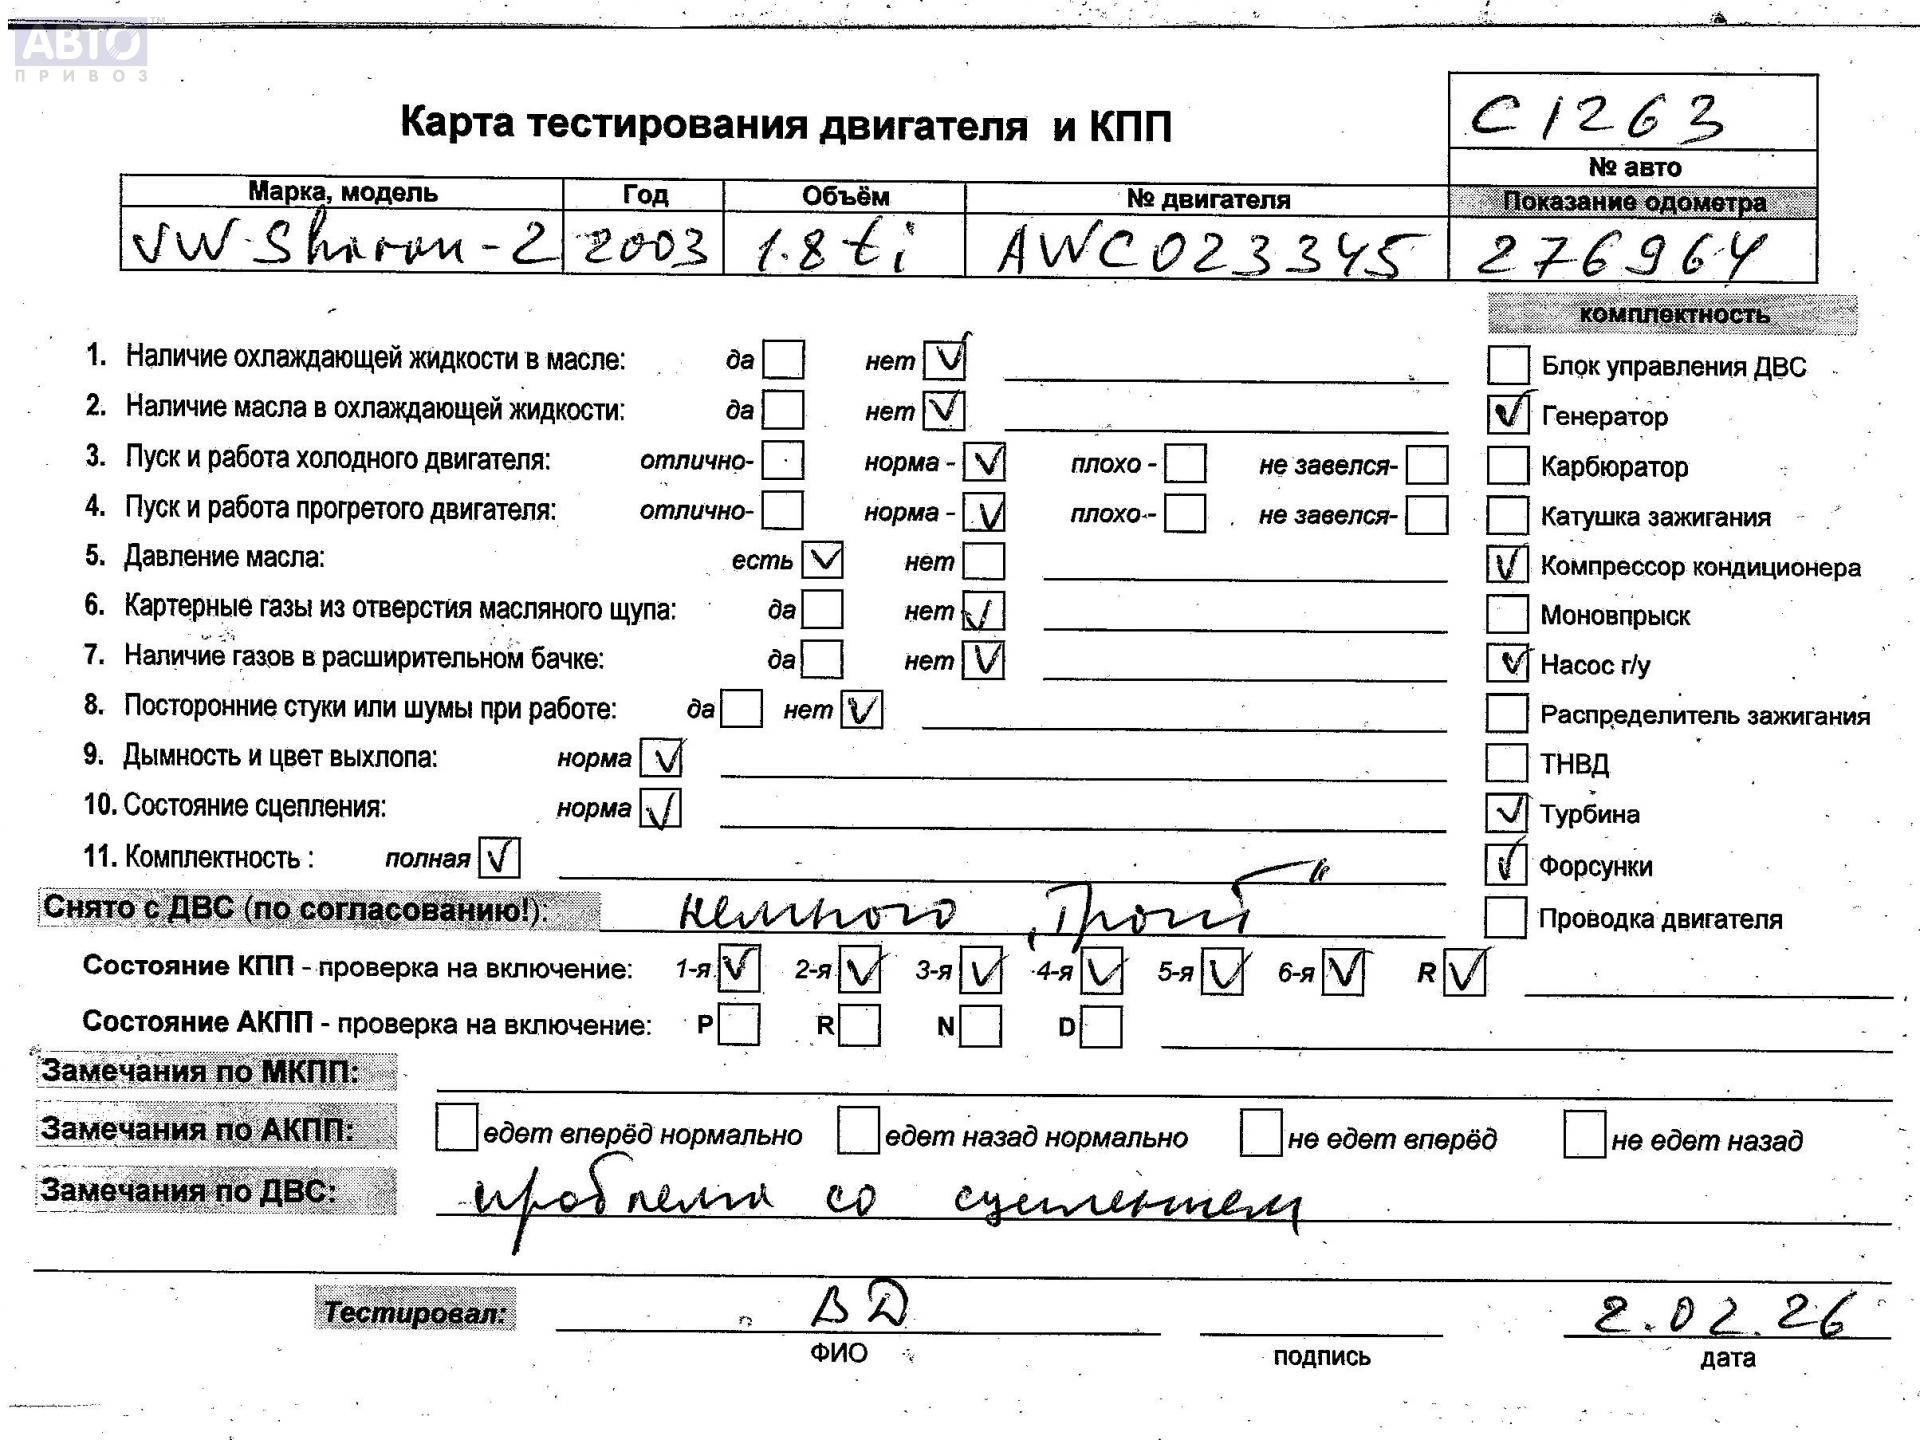 АВТО™
ПРИВОЗ
Карта тестирования двигателя и КПП
С1263
№ авто
Марка, модель Год Объём № двигателя Показание одометра
VW Sharan-2 2003 1.8 ti AWC023345 276964
комплектность
1. Наличие охлаждающей жидкости в масле: да нет ✓
2. Наличие масла в охлаждающей жидкости: да нет ✓
3. Пуск и работа холодного двигателя: отлично- норма - ✓ плохо - не завелся-
4. Пуск и работа прогретого двигателя: отлично- норма - ✓ плохо- не завелся-
5. Давление масла: есть ✓ нет
6. Картерные газы из отверстия масляного щупа: да нет ✓
7. Наличие газов в расширительном бачке: да нет ✓
8. Посторонние стуки или шумы при работе: да нет ✓
9. Дымность и цвет выхлопа: норма ✓
10. Состояние сцепления: норма ✓
11. Комплектность : полная ✓
Блок управления ДВС
✓ Генератор
Карбюратор
Катушка зажигания
✓ Компрессор кондиционера
Моновпрыск
✓ Насос г/у
Распределитель зажигания
ТНВД
✓ Турбина
✓ Форсунки
Проводка двигателя
Снято с ДВС (по согласованию!): немного „Троит“
Состояние КПП - проверка на включение: 1-я ✓ 2-я ✓ 3-я ✓ 4-я ✓ 5-я ✓ 6-я ✓ R ✓
Состояние АКПП - проверка на включение: P R N D
Замечания по МКПП:
Замечания по АКПП: едет вперёд нормально едет назад нормально не едет вперёд не едет назад
Замечания по ДВС: проблема со сцеплением
Тестировал: ВД 2.02.26
ФИО подпись дата